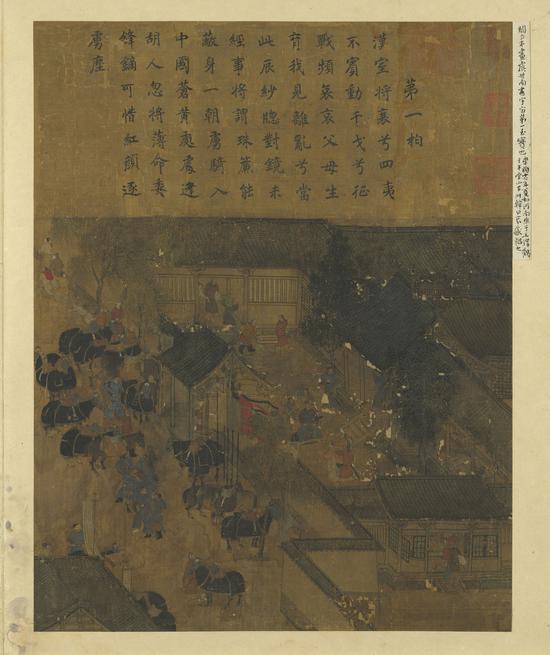 第一拍
漢室將衰兮四夷
不賓動干戈兮征
戰頻哀哀父母生
育我見離亂兮當
此辰紗牕對鏡未
經事將謂珠簾能
蔽身一朝虜騎入
中國蒼黃處處逢
胡人忽將薄命委
鋒鏑可惜紅顏逐
虜塵
閻立本畫虞世南書宇宙第一至寶也